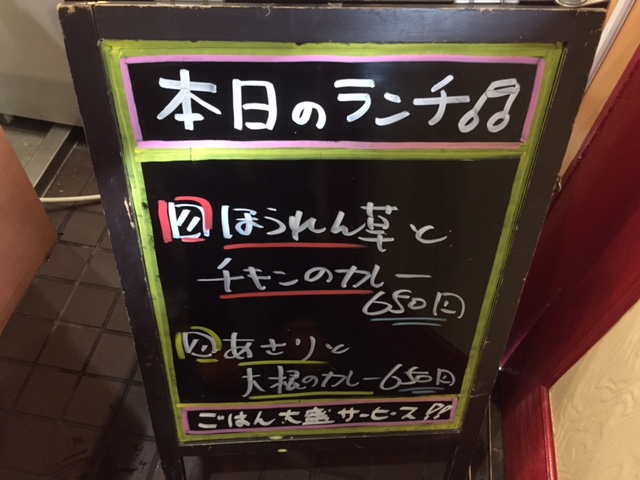 本日のランチ♫
ほうれん草と
チキンのカレー
650円
あさりと
大根のカレー650円
ごはん大盛サービス!!